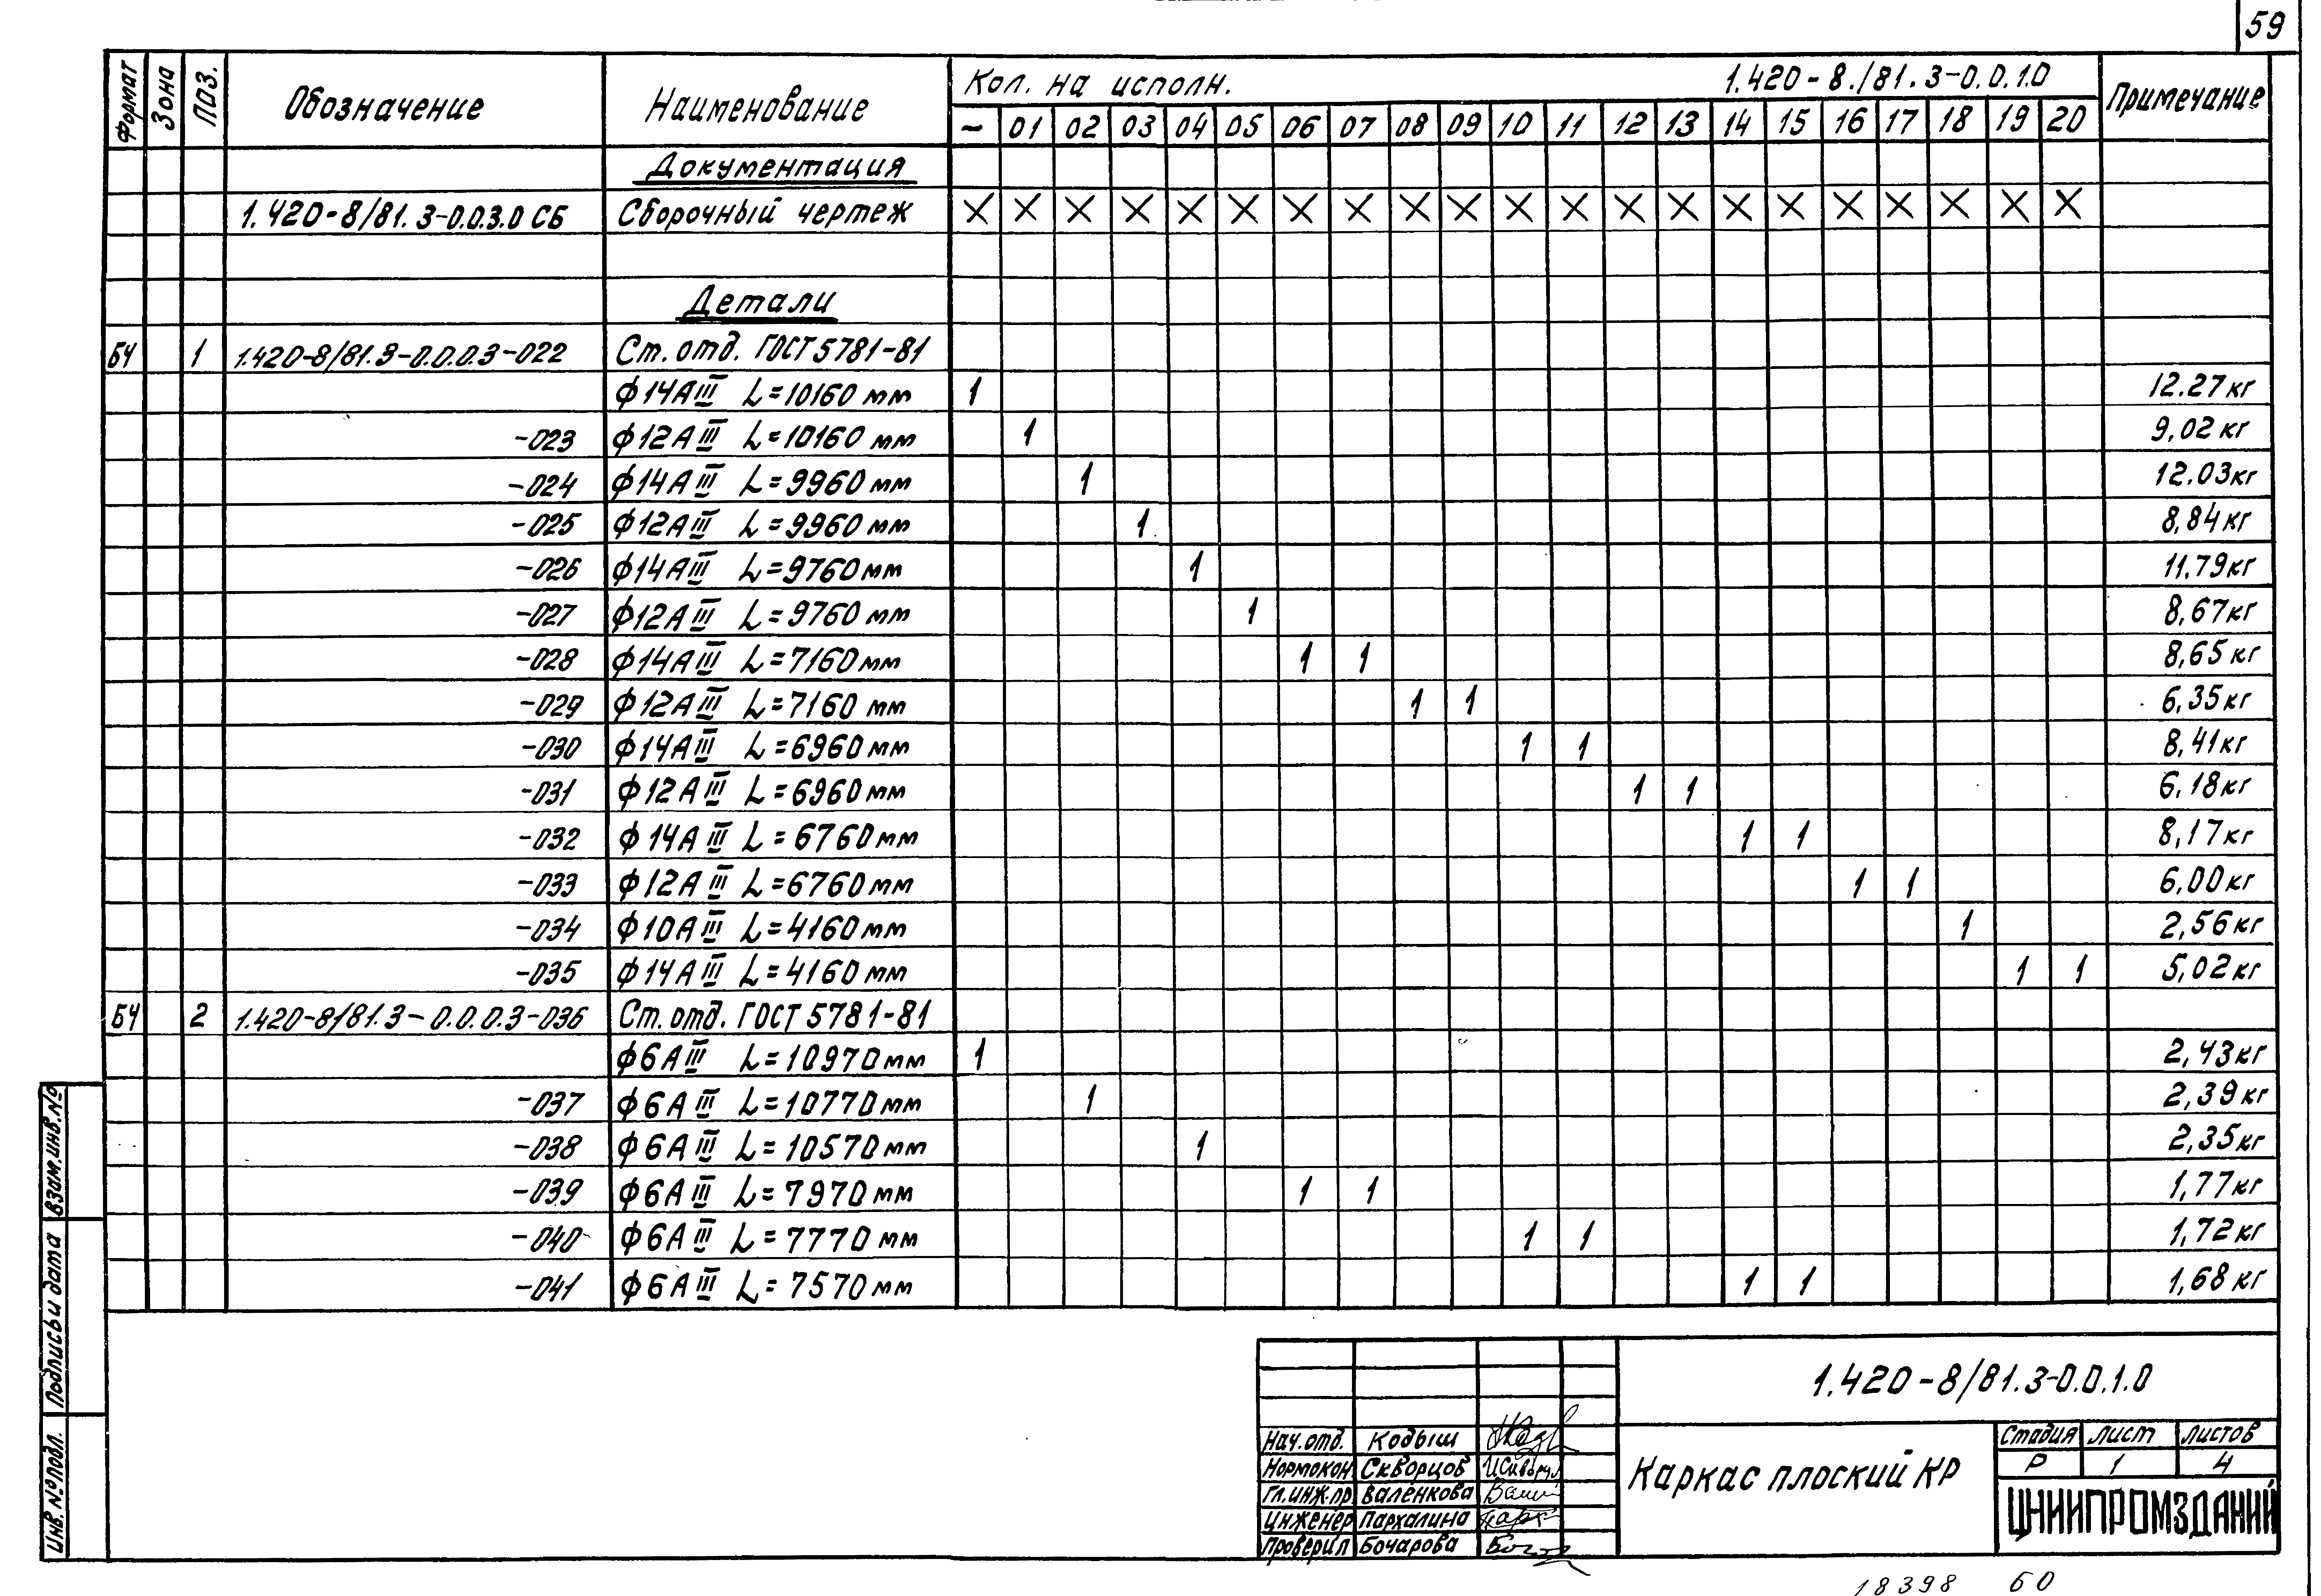 59
Формат Зона Поз. Обозначение Наименование Кол. на исполн. 1.420-8./81.3-0.0.1.0 Примечание
– 01 02 03 04 05 06 07 08 09 10 11 12 13 14 15 16 17 18 19 20
Документация
1.420-8/81.3-0.0.3.0 СБ Сборочный чертеж X X X X X X X X X X X X X X X X X X X X X
Детали
БЧ 1 1.420-8/81.3-0.0.0.3-022 Ст. отд. ГОСТ 5781-81
ф14АIII L=10160 мм 1 12.27кг
-023 ф12АIII L=10160 мм 1 9,02 кг
-024 ф14АIII L=9960 мм 1 12.03кг
-025 ф12АIII L=9960 мм 1 8,84кг
-026 ф14АIII L=9760мм 1 11.79кг
-027 ф12АIII L=9760 мм 1 8,67кг
-028 ф14АIII L=7160мм 1 1 8,65 кг
-029 ф12АIII L=7160 мм 1 1 6,35кг
-030 ф14АIII L=6960мм 1 1 8,41кг
-031 ф12АIII L=6960мм 1 1 6,18кг
-032 ф14АIII L=6760мм 1 1 8,17кг
-033 ф12АIII L=6760мм 1 1 6,00кг
-034 ф10АIII L=4160мм 1 2,56кг
-035 ф14АIII L=4160мм 1 1 5,02кг
БЧ 2 1.420-8/81.3-0.0.0.3-036 Ст. отд. ГОСТ 5781-81
ф6АIII L=10970мм 1 2,43кг
-037 ф6АIII L=10770мм 1 2,39кг
-038 ф6АIII L=10570мм 1 2,35кг
-039 ф6АIII L=7970мм 1 1 1,77кг
-040 ф6АIII L=7770мм 1 1 1,72кг
-041 ф6АIII L=7570мм 1 1 1,68кг
Взам.инв.№
Подпись и дата
Инв.№подл.
1.420-8/81.3-0.0.1.0
Нач.отд. Кодыш
Нормокон Скворцов
Гл.инж.пр Валенкова
Инженер Пархалина
Проверил Бочарова
Каркас плоский КР
Стадия Лист Листов
Р 1 4
ЦНИИПРОМЗДАНИЙ
18398 60